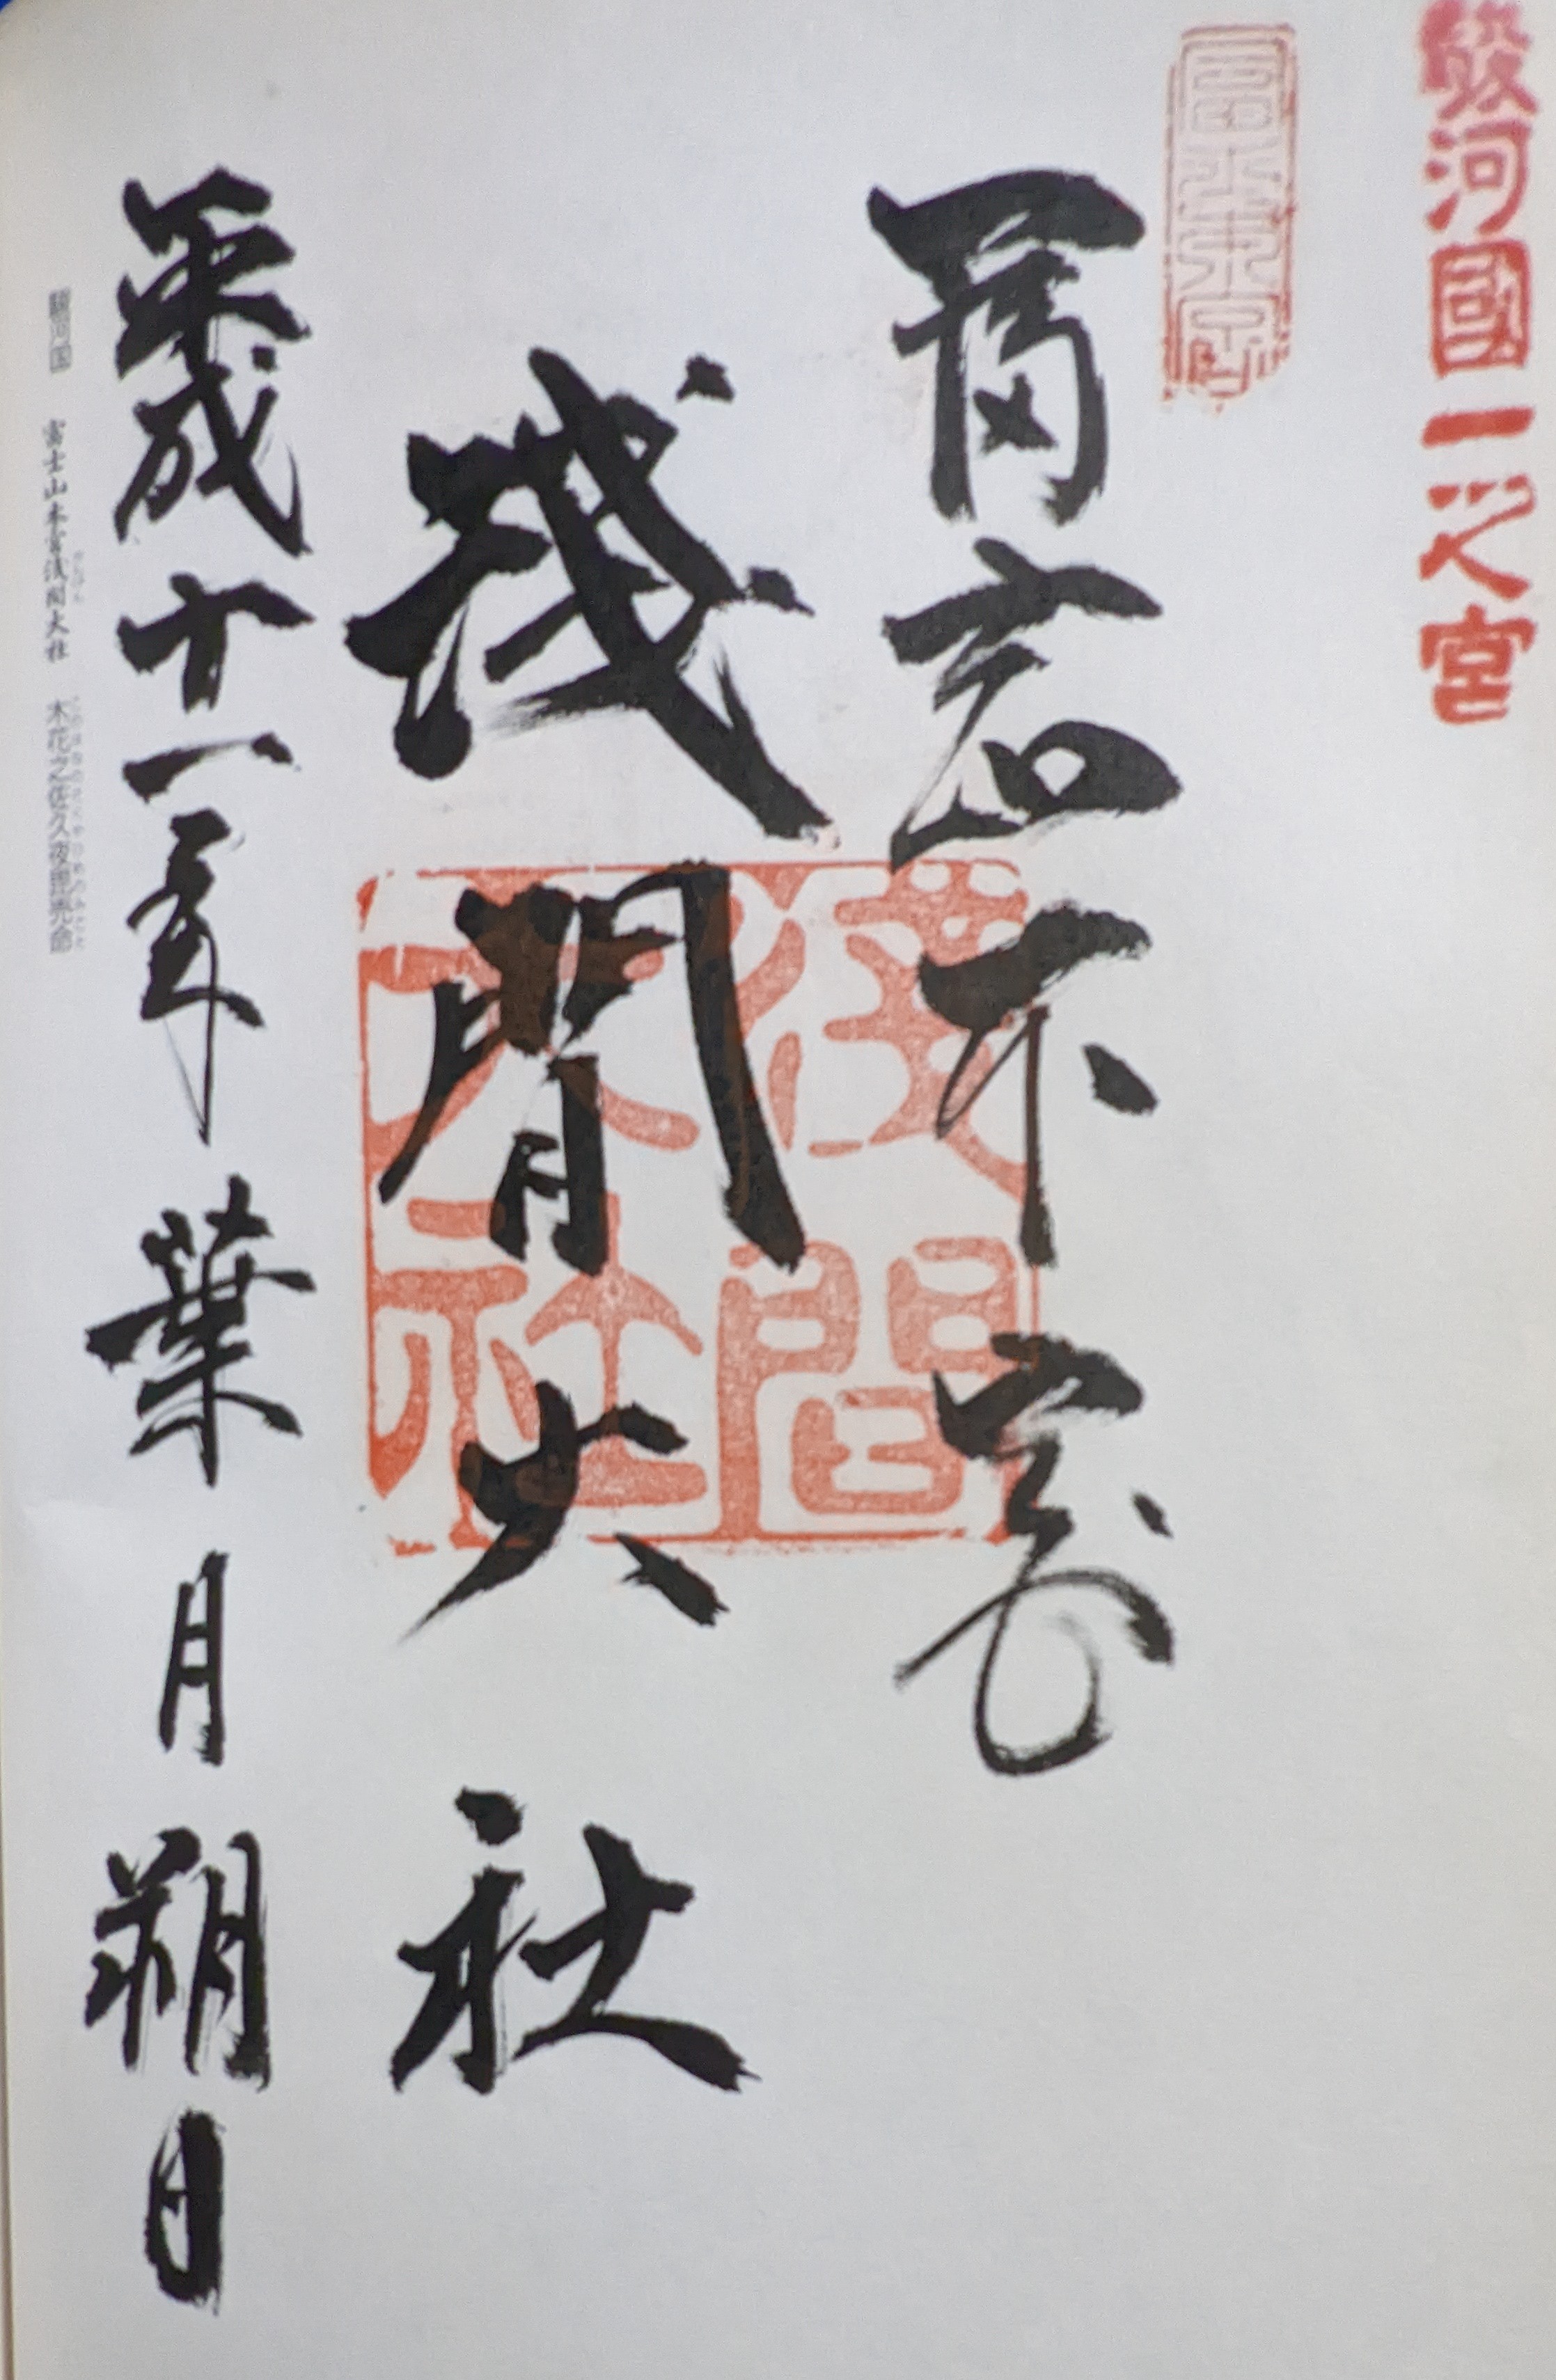 駿河國一之宮
富士本宮
富士本宮
浅間大社
浅間大社
平成十一年葉月朔日
駿河国 富士山本宮浅間大社 木花之佐久夜毘売命